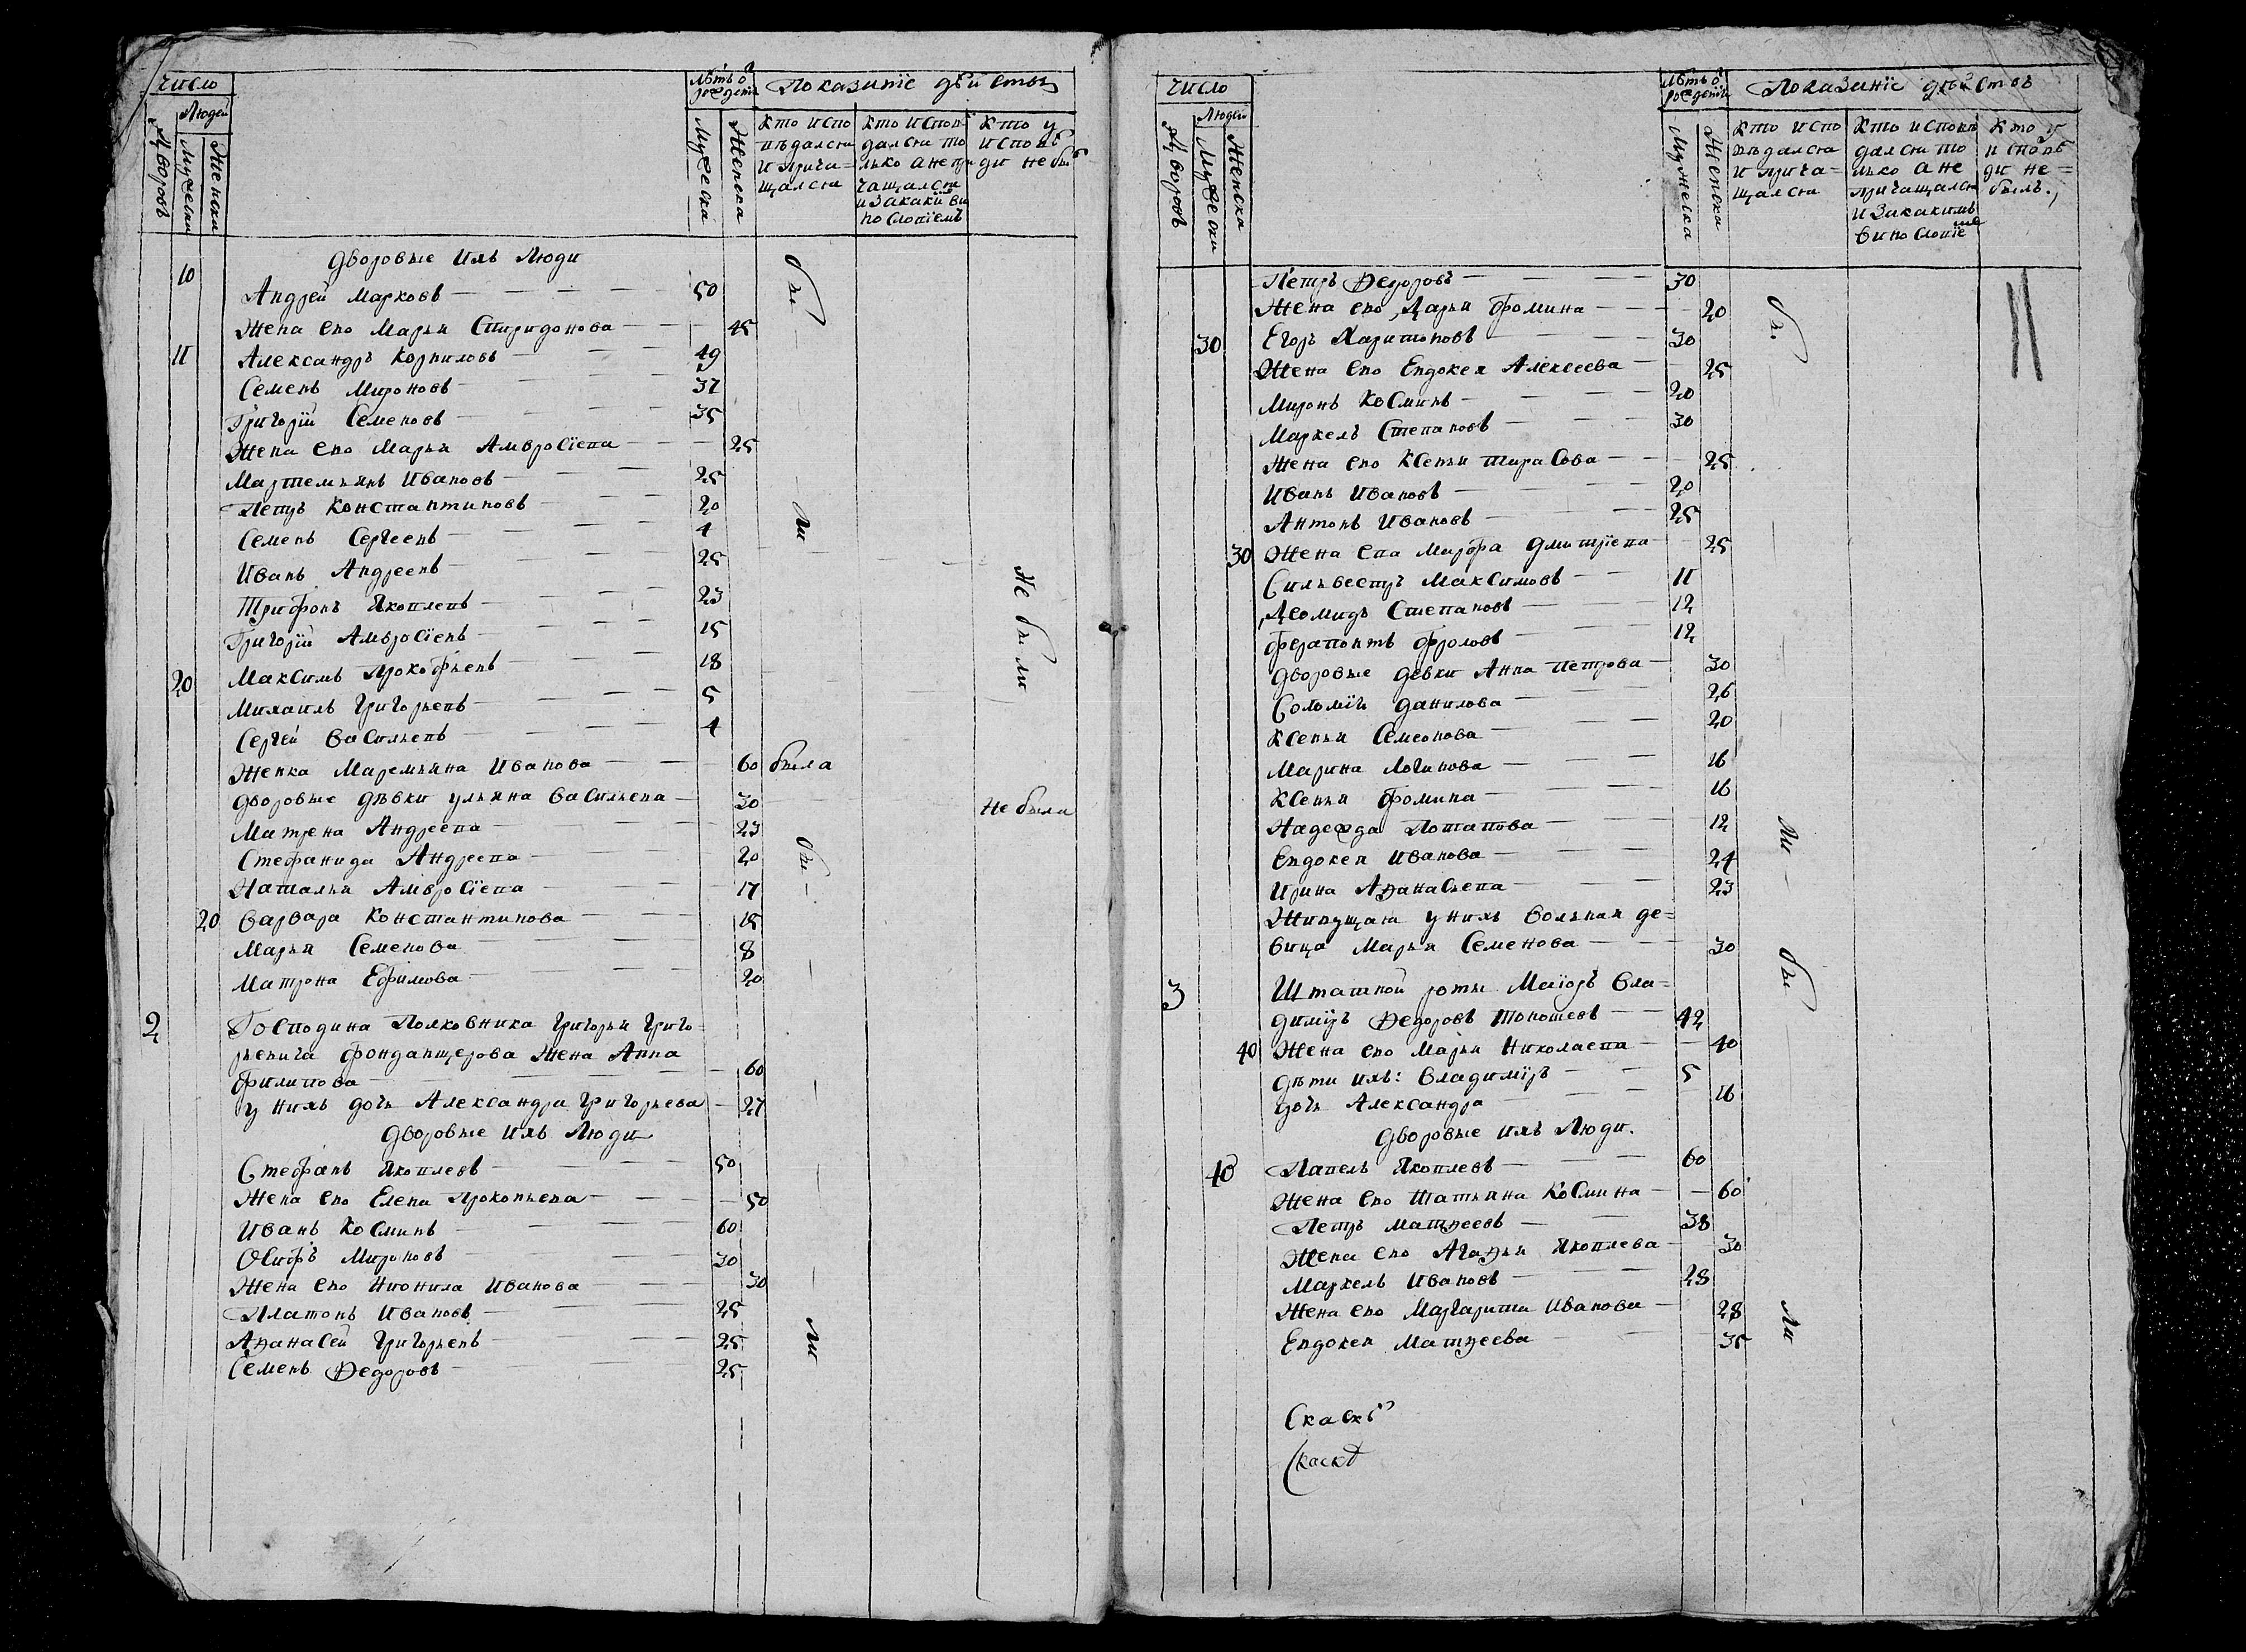 число
Людей
Дворовъ
Мужески
Женски
Лѣтъ ѿ рождения
Мужеска
Женска
Показание дѣйствъ
Кто испо
вѣдался
и прича=
щался
Кто испов
дался то
лько а не при
чащался
и за каким ви
нословіемъ
Кто у
исповѣ
ди не былъ
дворовые ихъ Люди
10 Андрей Марковъ — 50
Жена его Марья Спиридонова — 45
11 Александръ Корниловъ — 49
Семенъ Мироновъ — 37
Григорій Семеновъ — 35
Жена его Марья Амвросіева — 25
Мартемьянъ Ивановъ — 25
Петръ Константиновъ — 20
Семенъ Сергеевъ — 4
Иванъ Андреевъ — 25
Трифонъ Яковлевъ — 23
Григорій Амвросіевъ — 15
20 Максимъ Прокофьевъ — 18
Михаилъ Григорьевъ — 5
Сергей Васильевъ — 4
Женка Маремьяна Иванова — 60 была
дворовые дѣвки Ульяна Васильева — 30 не была
Матрена Андреева — 23
Стефанида Андреева — 20
Наталья Амвросіева — 17
20 Варвара Константинова — 15
Марья Семенова — 8
Матрона Ефимова — 20
бы — ли
Не были
бы — ли
2 Господина Полковника Григорья Григо-
рьевича Фонданцерова Жена Анна
Филипова — 60
у нихъ дочь Александра Григорьева — 27
дворовые ихъ Люди
Стефанъ Яковлевъ — 50
Жена его Елена Прокопьева — 50
Иванъ Косминъ — 60
Осифъ Мироновъ — 30
Жена его Нионила Иванова — 30
Платонъ Ивановъ — 25
Аѳанасей Григорьевъ — 25
Семенъ Ѳедоровъ — 25
число
Людей
Дворовъ
Мужески
Женска
Лѣтъ ѿ рождения
Мужеска
Женска
Показаніе дѣйствъ
Кто испо
вѣдался
и прича=
щался
Кто исповѣ
дался то
лько а не
причащался
и за какимъ
винословіе
Кто у
исповѣ
ди не=
былъ.
Петръ Ѳедоровъ — 30
Жена его Дарья Фомина — 20
30 Егоръ Харитоновъ — 30
Жена его Евдокея Алексеева — 25
Миронъ Косминъ — 20
Маркелъ Степановъ — 30
Жена его Ксенья Тарасова — 25
Иванъ Ивановъ — 20
Антонъ Ивановъ — 25
30 Жена ева Марфа Дмитріева — 25
Сильвестръ Максимовъ — 11
Деомидъ Степановъ — 12
Ферапонтъ Фроловъ — 12
дворовые девки Анна Петрова — 30
Соломія Данилова — 26
Ксенья Семеонова — 20
Марина Логинова — 16
Ксенья Фомина — 16
Надежда Потапова — 12
Евдокея Иванова — 24
Ирина Аѳанасьева — 23
Живущая у нихъ вольная де=
вица Марья Семенова — 30
бы — ли
3 Штатной роты Маіоръ Вла=
димиръ Ѳедоровъ Топошевъ — 42
40 Жена его Марья Николаева — 40
Дѣти ихъ: Владиміръ — 5
дочь Александра — 16
дворовые ихъ Люди.
40 Павелъ Яковлевъ — 60
Жена его Татьяна Космина — 60
Петръ Матѳеевъ — 38
Жена его Агаѳья Яковлева — 30
Маркелъ Ивановъ — 28
Жена его Маргарита Иванова — 28
Евдокея Матѳеева — 35
бы — ли